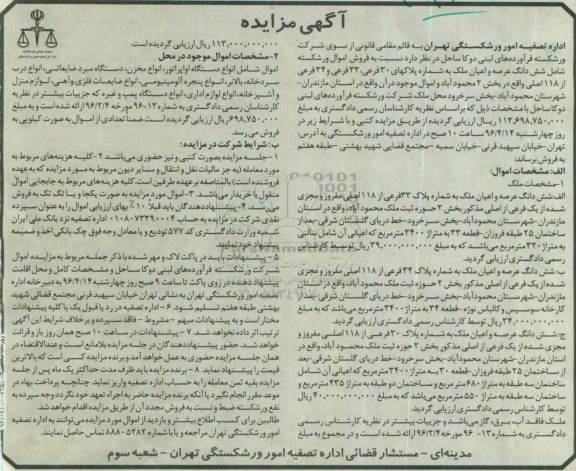 آگهی مزایده
اداره تصفیه امور ورشکستگی تهران به قائم مقامی قانونی از سوی شرکت
ورشکسته فرآورده‌های لبنی دوکا ساحل در نظر دارد نسبت به فروش اموال ورشکسته
شامل شش دانگ عرصه و اعیان ملک به شماره پلاکهای ۳۰ فرعی، ۳۳ فرعی و ۳۴ فرعی
از ۱۱۸ اصلی واقع در بخش ۲ محمودآباد و اموال موجود در آن واقع در استان مازندران-
شهرستان محمودآباد-بخش سرخرود محل ملک شرکت ورشکسته فرآورده‌های لبنی
دوکا ساحل با مشخصات ذیل که بر اساس نظریه کارشناسان رسمی دادگستری به مبلغ
۱۱۳,۶۹۸,۷۵۰,۰۰۰ ریال ارزیابی گردیده از طریق مزایده کتبی و با شرایط زیر در
روز چهارشنبه ۹۶/۴/۱۴ ساعت ۱۰ صبح در اداره تصفیه امور ورشکستگی به آدرس:
تهران-خیابان سپهبد قرنی-خیابان سمیه-مجتمع قضایی شهید بهشتی-طبقه هفتم
به فروش برساند:
الف: مشخصات اموال:
۱-مشخصات ملک
الف: شش دانگ عرصه و اعیان ملک به شماره پلاک ۳۳ فرعی از ۱۱۸ اصلی مفروز و مجزی
شده از یک فرعی از اصلی مذکور بخش ۲ حوزه ثبت ملک محمودآباد واقع در استان
مازندران-شهرستان محمودآباد-بخش سرخرود-خط دریای گلستان شرقی-بعد از
ساختمان ۲۵ طبقه فروزان-قطعه ۳۳ به متراژ ۳۴۰۰ مترمربع که اعیانی آن شامل بنائی
به متراژ ۳۳۰ مترمربع می‌باشد که به مبلغ ۳۹,۰۰۰,۰۰۰,۰۰۰ ریال توسط کارشناس
رسمی دادگستری ارزیابی گردید.
ب: شش دانگ عرصه و اعیان ملک به شماره پلاک ۳۴ فرعی از ۱۱۸ اصلی مفروز و مجزی
شده از یک فرعی از اصلی مذکور بخش ۲ حوزه ثبت ملک محمودآباد، واقع در استان
مازندران-شهرستان محمودآباد-بخش سرخرود-خط دریای گلستان شرقی-بعد از
کارخانه سوسیس و کالباس نوژه-قطعه ۳۴ به متراژ ۳۴۰۰ مترمربع می‌باشد که به مبلغ
۳۴,۰۰۰,۰۰۰,۰۰۰ ریال توسط کارشناس رسمی دادگستری ارزیابی گردید.
ج: شش دانگ عرصه و اعیان ملک به شماره پلاک ۳۰ فرعی از ۱۱۸ اصلی مفروز و
مجزی شده از یک فرعی از اصلی مذکور بخش ۲ حوزه ثبت ملک محمودآباد، واقع در
استان مازندران-شهرستان محمودآباد-بخش سرخرود-خط دریای گلستان شرقی-بعد
از ساختمان ۲۵ طبقه فروزان-قطعه ۳۰ به متراژ ۳۴۰۰ مترمربع که اعیانی آن شامل
ساختمان سه طبقه به متراژ ۶۸۰ مترمربع و ساختمان دو طبقه به متراژ ۴۳۵ مترمربع و
ساختمان سه طبقه به متراژ ۵۵۰ مترمربع می‌باشد که به مبلغ ۴۰,۰۰۰,۰۰۰,۰۰۰ ریال
توسط کارشناس رسمی دادگستری ارزیابی گردید.
ملک فاقد آب، برق، گاز می‌باشد و جزییات بیشتر در نظریه کارشناس رسمی
دادگستری به شماره ۱۳-۹۶ مورخه ۹۶/۲/۴ ارائه شده است و در مجموع به مبلغ
۱۱۳,۰۰۰,۰۰۰,۰۰۰ ریال ارزیابی گردیده است.
۲-مشخصات اموال موجود در محل
اموال شامل انواع دستگاه اواپراتور، انواع مخزن، دستگاه مبرد ضایعاتی، انواع درب
سردخانه، بالابر، انواع پنجره آلومینیومی، انواع ضایعات فلزی و آهنی، لوازم منزل
و آشپزخانه، انواع لوازم اداری، انواع دستگاه پمپ و غیره که جزییات بیشتر در نظریه
کارشناسان رسمی دادگستری به شماره ۱۳-۹۶ مورخه ۹۶/۲/۴ ارائه شده است و به مبلغ
۶۹۸,۷۵۰,۰۰۰ ریال ارزیابی گردیده است ضمنا تعدادی از اموال به صورت کیلویی به
فروش می رسد.
ب: شرایط شرکت در مزایده:
۱-جلسه مزایده بصورت کتبی و نیز حضوری می‌باشد ۲-کلیه هزینه‌های مربوط به
مورد معامله (به جز مالیات نقل و انتقال و سایر دیون مربوط به مورد مزایده که به عهده
فروشنده است) بالمناصفه بر عهده طرفین است، کلیه هزینه‌های مربوط به جابجایی اموال
منقول با خریدار می‌باشد. ۳-اموال مورد مزایده به صورت یکجا و یا تک تک به فروش
می‌رسد. ۴-پیشنهاددهندگان باید قبلا ۱۰٪ بهای ارزیابی اموال را به عنوان سپرده
نقدی شرکت در مزایده به حساب ۰۱۰۸۰۷۳۳۹۰۰۰۴ اداره تصفیه نزد بانک ملی ایران
شعبه وزارت دادگستری کد ۵۷۷ تودیع و یا معادل وجه فوق چک بانکی اخذ و ضمیمه
پیشنهاد خود نمایند.
۵-پیشنهادات باید در پاکت لاک و مهر شده با ذکر جمله مربوط به مزایده اموال
شرکت ورشکسته فرآورده‌های لبنی دوکا ساحل و مشخصات کامل و محل اقامت
پیشنهاد دهنده در روی پاکت تا ساعت ۹ صبح روز چهارشنبه ۹۶/۴/۱۴ به دبیرخانه اداره
تصفیه امور ورشکستگی تهران به نشانی تهران خیابان سپهبد قرنی مجتمع قضائی شهید
بهشتی طبقه هفتم تسلیم شود. ۶-اداره تصفیه در رد یا قبول یک یا کلیه پیشنهادات
مختار است و به پیشنهادات مبهم-مشروط-فاقد سپرده و بر خلاف شرایط این آگهی
ترتیب اثر داده نخواهد شد. ۷-پیشنهادات در ساعت ۱۰ صبح همان روز باز و قرائت
خواهد شد. حضور پیشنهاددهندگان در جلسه مزایده بلامانع است و عندالاقتضاء در
همان جلسه مزایده حضوری به عمل خواهد آمد و برنده مزایده کسی است که بالاترین
قیمت را پیشنهاد نماید. ۸-برنده مزایده باید ظرف مدت حداکثر یک ماه پس از جلسه
مزایده بقیه ثمن معامله را به حساب اداره تصفیه واریز نماید. چنانچه پرداخت بهاء در
موعد مقرر انجام نگیرد یا آنکه برنده مزایده حاضر به اجراء تعهد خود نگردد وجه سپرده به
نفع ورشکسته ضبط و نسبت به فروش مجدد آن از طریق مزایده اقدام خواهد شد.
طالبین برای کسب اطلاع بیشتر و بازدید از اموال مورد مزایده می‌توانند به اداره تصفیه
امور ورشکستگی تهران مراجعه و یا با شماره ۸۸۸۰۵۲۸۲ تماس حاصل نمایند.
مدینه‌ای - مستشار قضائی اداره تصفیه امور ورشکستگی تهران - شعبه سوم